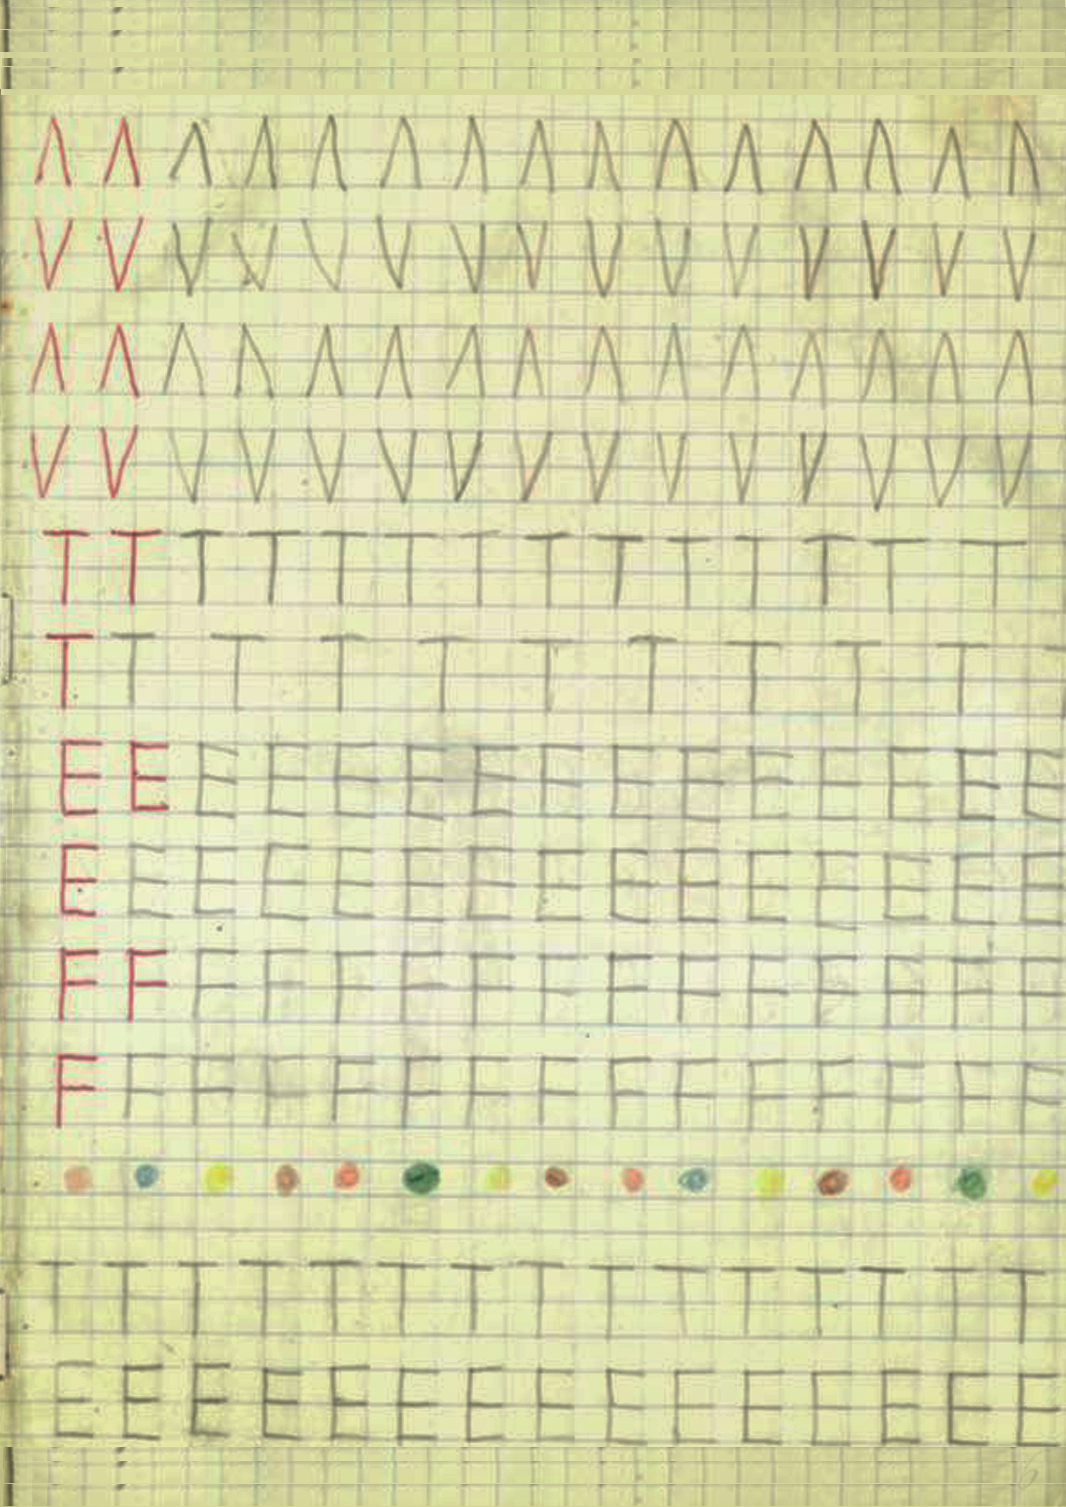 Λ Λ Λ Λ Λ Λ Λ Λ Λ Λ Λ Λ Λ Λ Λ
V V V V V V V V V V V V V V V
Λ Λ Λ Λ Λ Λ Λ Λ Λ Λ Λ Λ Λ Λ Λ
V V V V V V V V V V V V V V V
T T T T T T T T T T T T T T
T T T T T T T T T T
E E E E E E E E E E E E E E E
E E E E E E E E E E E E E E E
F F F F F F F F F F F F F F F
F F F F F F F F F F F F F F F
T T T T T T T T T T T T T T T
E E E E E E E E E E E E E E E